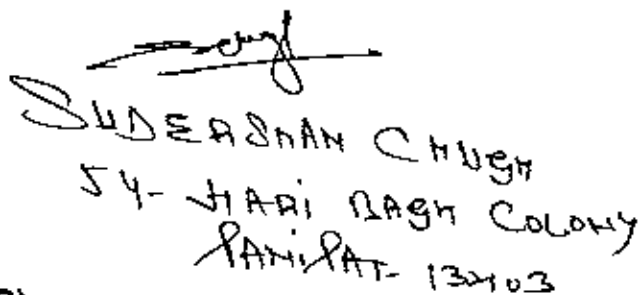 SUDERSHAN CHUGH
54- HARI BAGH COLONY
PANIPAT- 132103